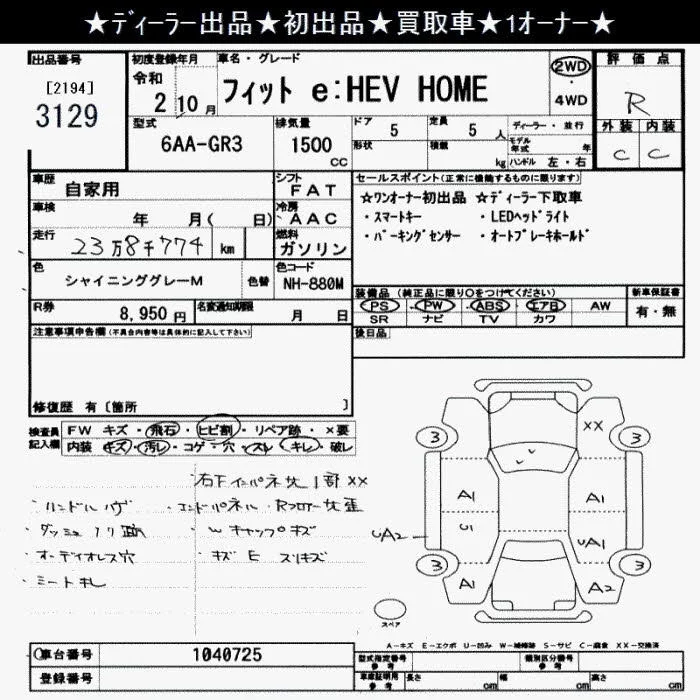 ★ディーラー出品★初出品★買取車★1オーナー★
出品番号
[2194]
3129
初度登録年月
令和
2 10 月
車名・グレード
フィット e:HEV HOME
2WD
・
4WD
評価点
R
外装 内装
C C
型式
6AA-GR3
排気量
1500
CC
ドア 5
形状
定員 5 人
積載 kg
ディーラー・並行
モデル年式 年
ハンドル 左・右
車歴 自家用
シフト
FAT
車検 年 月( 日)
冷房
AAC
走行 23万8千774 km
燃料
ガソリン
色 シャイニンググレーM 色替
色コード
NH-880M
R券 8,950 円
名変通知期限 月 日
セールスポイント(正常に機能するものに限ります)
★ワンオーナー初出品 ★ディーラー下取車
・スマートキー ・LEDヘッドライト
・パーキングセンサー ・オートブレーキホールド
装備品 (純正品に限り○をつけてください)
PS・PW・ABS・エアB・AW
SR ナビ TV カワ
新車保証書
有・無
後日品
注意事項申告欄(不具合内容等は具体的に記入して下さい)
修復歴 有〔箇所 〕
検査員
記入欄
FW キズ・飛石・ヒビ割・リペア跡・×要
内装 キズ・汚レ・コゲ・穴・スレ・キレ・破レ
××
3 3
A1 A1
U1 UA1
UA2
3 3
A1 A2
スペア
右下インパネサビ1部××
ハンドルハゲ ・エンドパネル・Rフロアー
・Wキャップキズ
・オーディオレス穴 ・キズE スリキズ
・シートキレ
A-キズ E-エクボ U-凹み W-補修跡 S-サビ C-腐食 XX-交換済
車台番号 1040725
登録番号
型式指定番号
参考
類別区分番号
参考
車庫証明用
参考
長さ cm 幅 cm 高さ cm